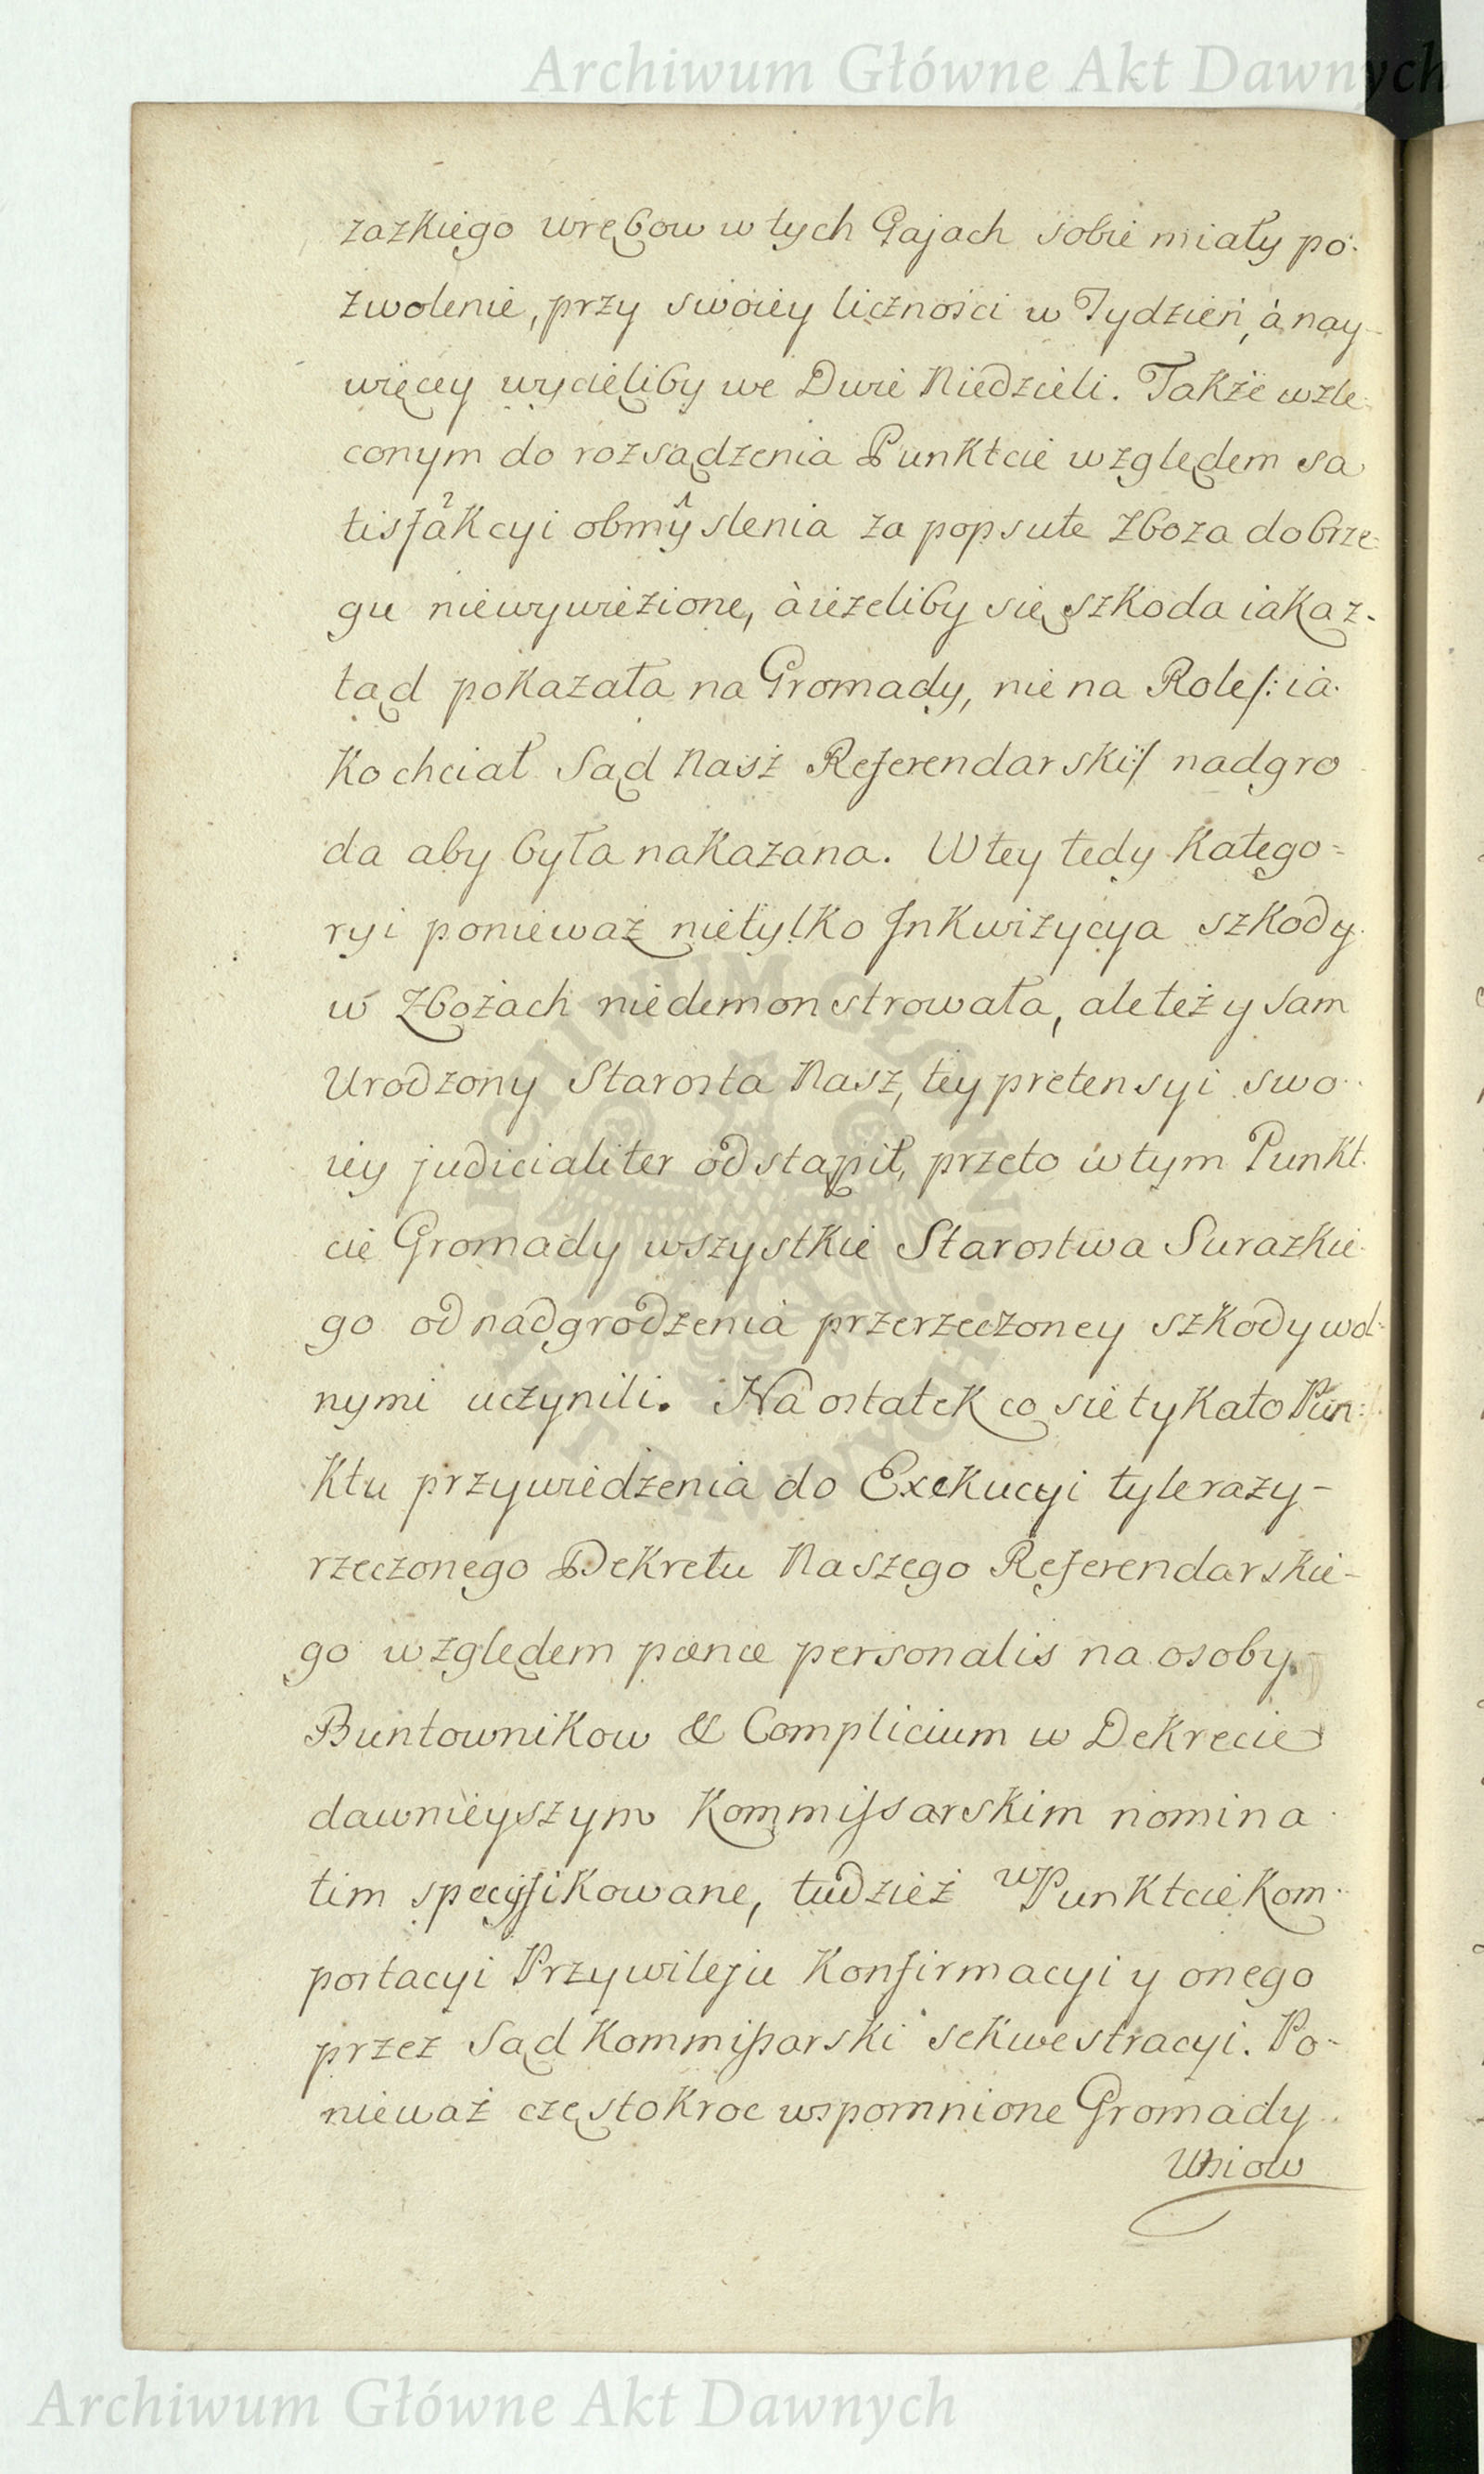 Archiwum Główne Akt Dawnych
zazkiego wrębow w tych Gajach sobie miały po-
zwolenie, przy swoiey liczności w Tydzień, à nay-
więcey wycieliby we Dwie Niedzieli. Także w zle-
conym do rozsądzenia Punktcie względem sa
tisfakcyi obmyslenia za popsute Zboza do brze-
gu niewywiezione, à ieżeliby się szkoda iaka z-
tąd pokazała na Gromady, nie na Role /: ia-
ko chciał Sąd Nasz Referendarski :/ nadgro
da aby była nakazana. W tey tedy Katego-
ryi ponieważ nietylko Inkwizycya szkody
w Zbożach niedemonstrowała, ale też y sam
Urodzony Starosta Nasz, tey pretensyi swo-
iey judicialiter odstąpił, przeto w tym Punkt-
cie Gromady wszystkie Starostwa Surazkie-
go od nadgrodzenia przerzeczoney szkody wol-
nymi uczynili. Na ostatek co się tykało Pun-
ktu przywiedzenia do Exekucyi tylerazy-
rzeczonego Dekretu Naszego Referendarskie-
go względem pœnæ personalis na osoby
Buntownikow & Complicium w Dekrecie
dawnieyszym Kommissarskim nomina
tim specyfikowane, tudzież w Punktcie Kom-
portacyi Przywileju Konfirmacyi y onego
przez Sąd Kommissarski sekwestracyi. Po-
nieważ częstokroc wspomnione Gromady
Wsiow
ARCHIWUM GŁÓWNE AKT DAWNYCH
Archiwum Główne Akt Dawnych